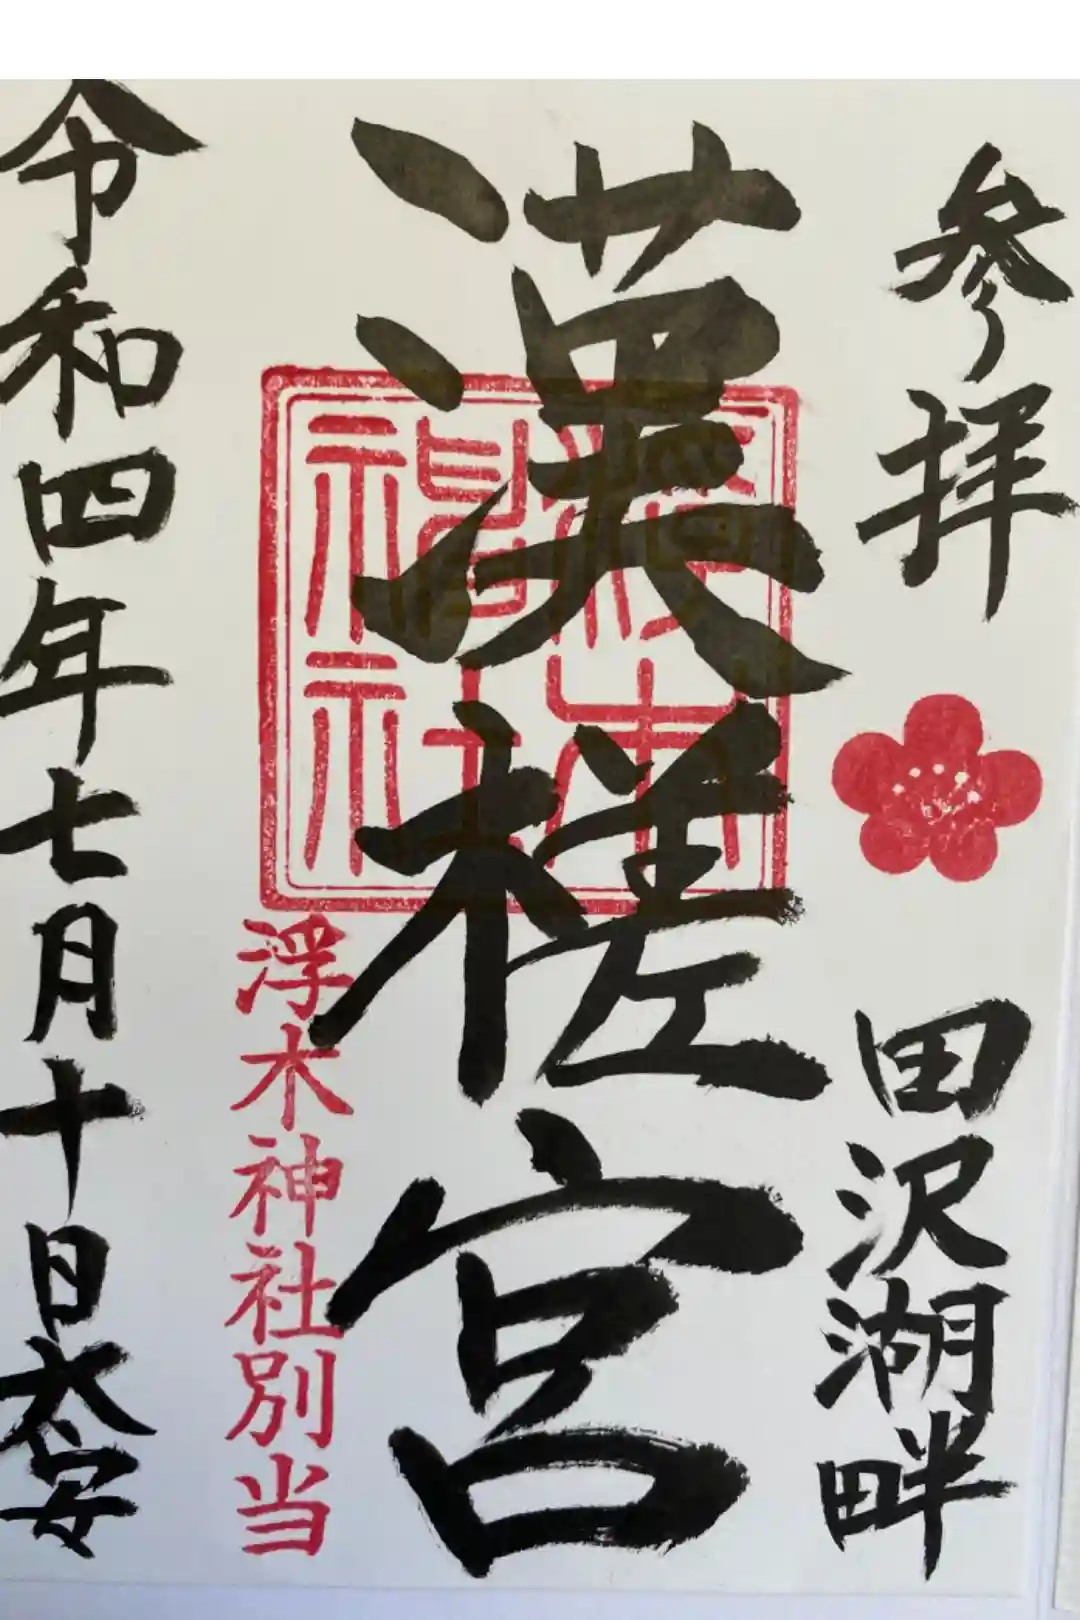 参拝
田沢湖畔
漢槎宮
浮木神社別当
令和四年七月十日大安